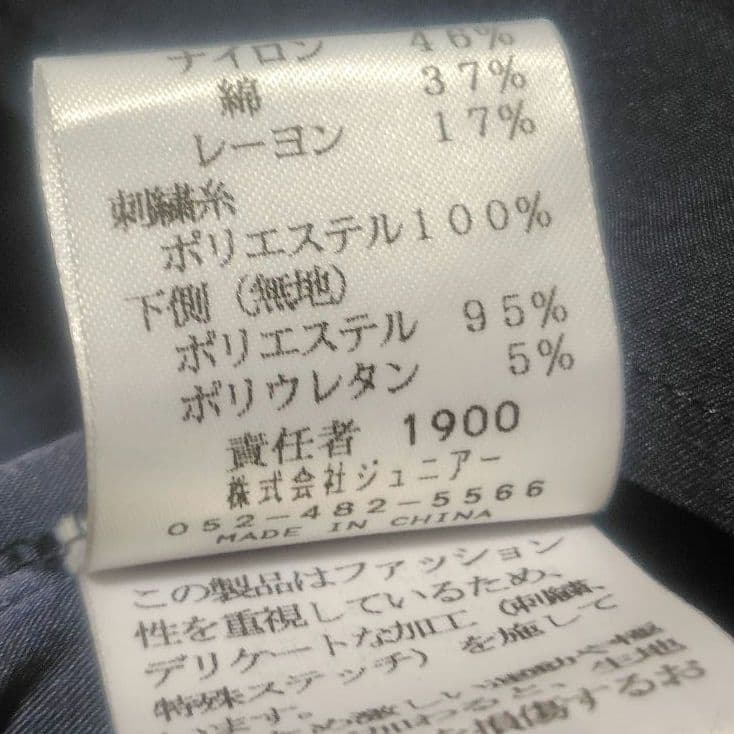 ナイロン 46%
綿 37%
レーヨン 17%
刺繍糸
ポリエステル 100%
下側（無地）
ポリエステル 95%
ポリウレタン 5%
責任者 1900
株式会社ジュニアー
052-482-5566
MADE IN CHINA
この製品はファッション
性を重視しているため、
デリケートな加工（刺繍、
特殊ステッチ）を施して
います。
生地
を損傷するお